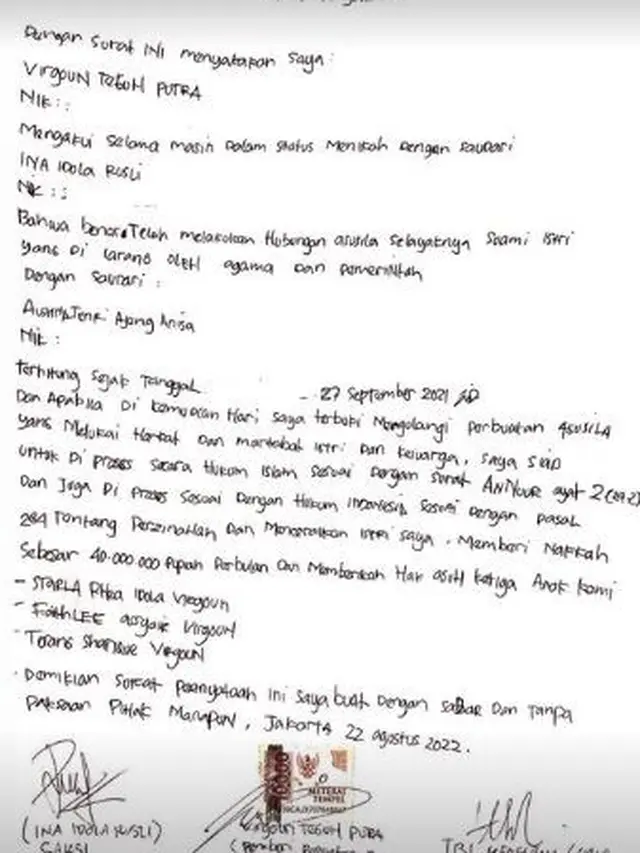 Dengan Surat INI menyatakan Saya :
VirgoUN TEGUH PUTRA
NIK : :
Mengakui Selama masih Dalam Status Menikah Dengan Saudari
INA IDOLA RUSLI
NIK : :
Bahwa benar Telah melakukan Hubungan asusila Selayaknya Suami istri
yang Di larang OLEH agama Dan Pemerintah
Dengan Saudari :
Tenri Ajeng Anisa
Nik :
Terhitung Sejak Tanggal - 27 September 2021
Dan Apabila Di kemudian Hari, saya terbukti Mengulangi Perbuatan asusila
yang Melukai Harkat Dan martabat istri Dan keluarga, saya siap
untuk Di Proses Secara Hukum Islam Sesuai Dengan surat AnNuur ayat 2
Dan Juga Di Proses Sesuai Dengan Hukum Indonesia, Sesuai Dengan Pasal
284 Tentang Perzinahan Dan Menceraikan istri saya, Memberi Nafkah
Sebesar 40.000.000 Rupiah Perbulan Dan Memberikan Hak asuh ketiga Anak kami
- STARLA RHea IDola Virgoun
- Virgoun
- Virgoun
. Demikian Surat Pernyataan Ini Saya buat Dengan sadar Dan Tanpa
Paksaan Pihak Manapun, Jakarta 22 agustus 2022.
METERAI
TEMPEL
(INA IDOLA RUSLI)
SAKSI
Virgoun TEGUH PUTRA